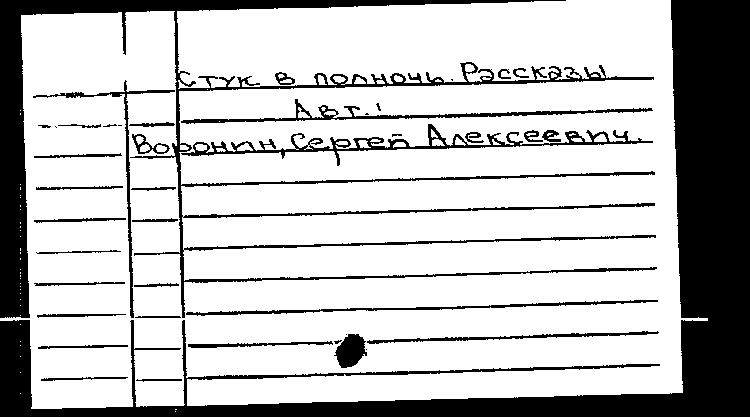 Стук в полночь. Рассказы.
Авт.:
Воронин, Сергей Алексеевич.